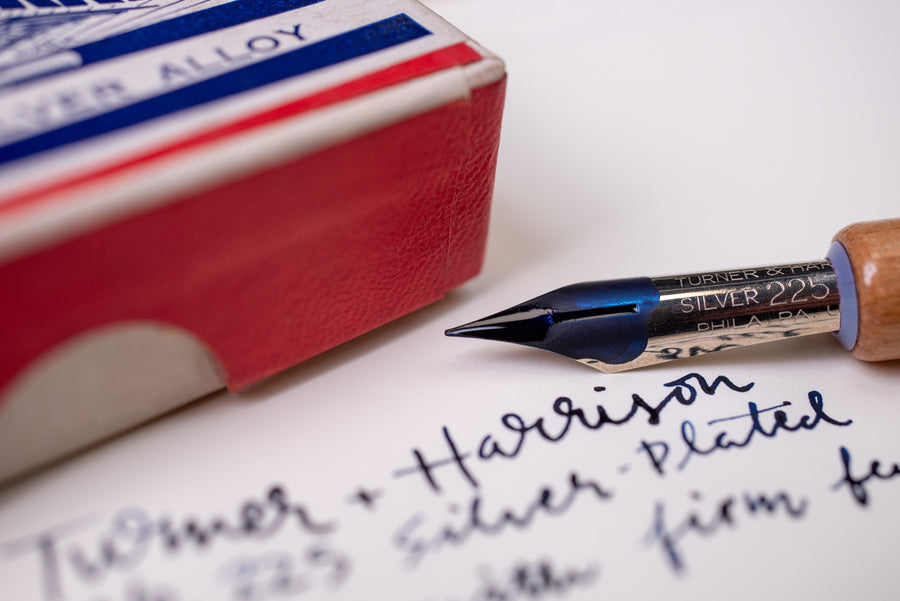 SILVER ALLOY
TURNER & HAR
SILVER 225
PHILA. PA. U
Turner + Harrison
225 Silver-Plated
firm fe